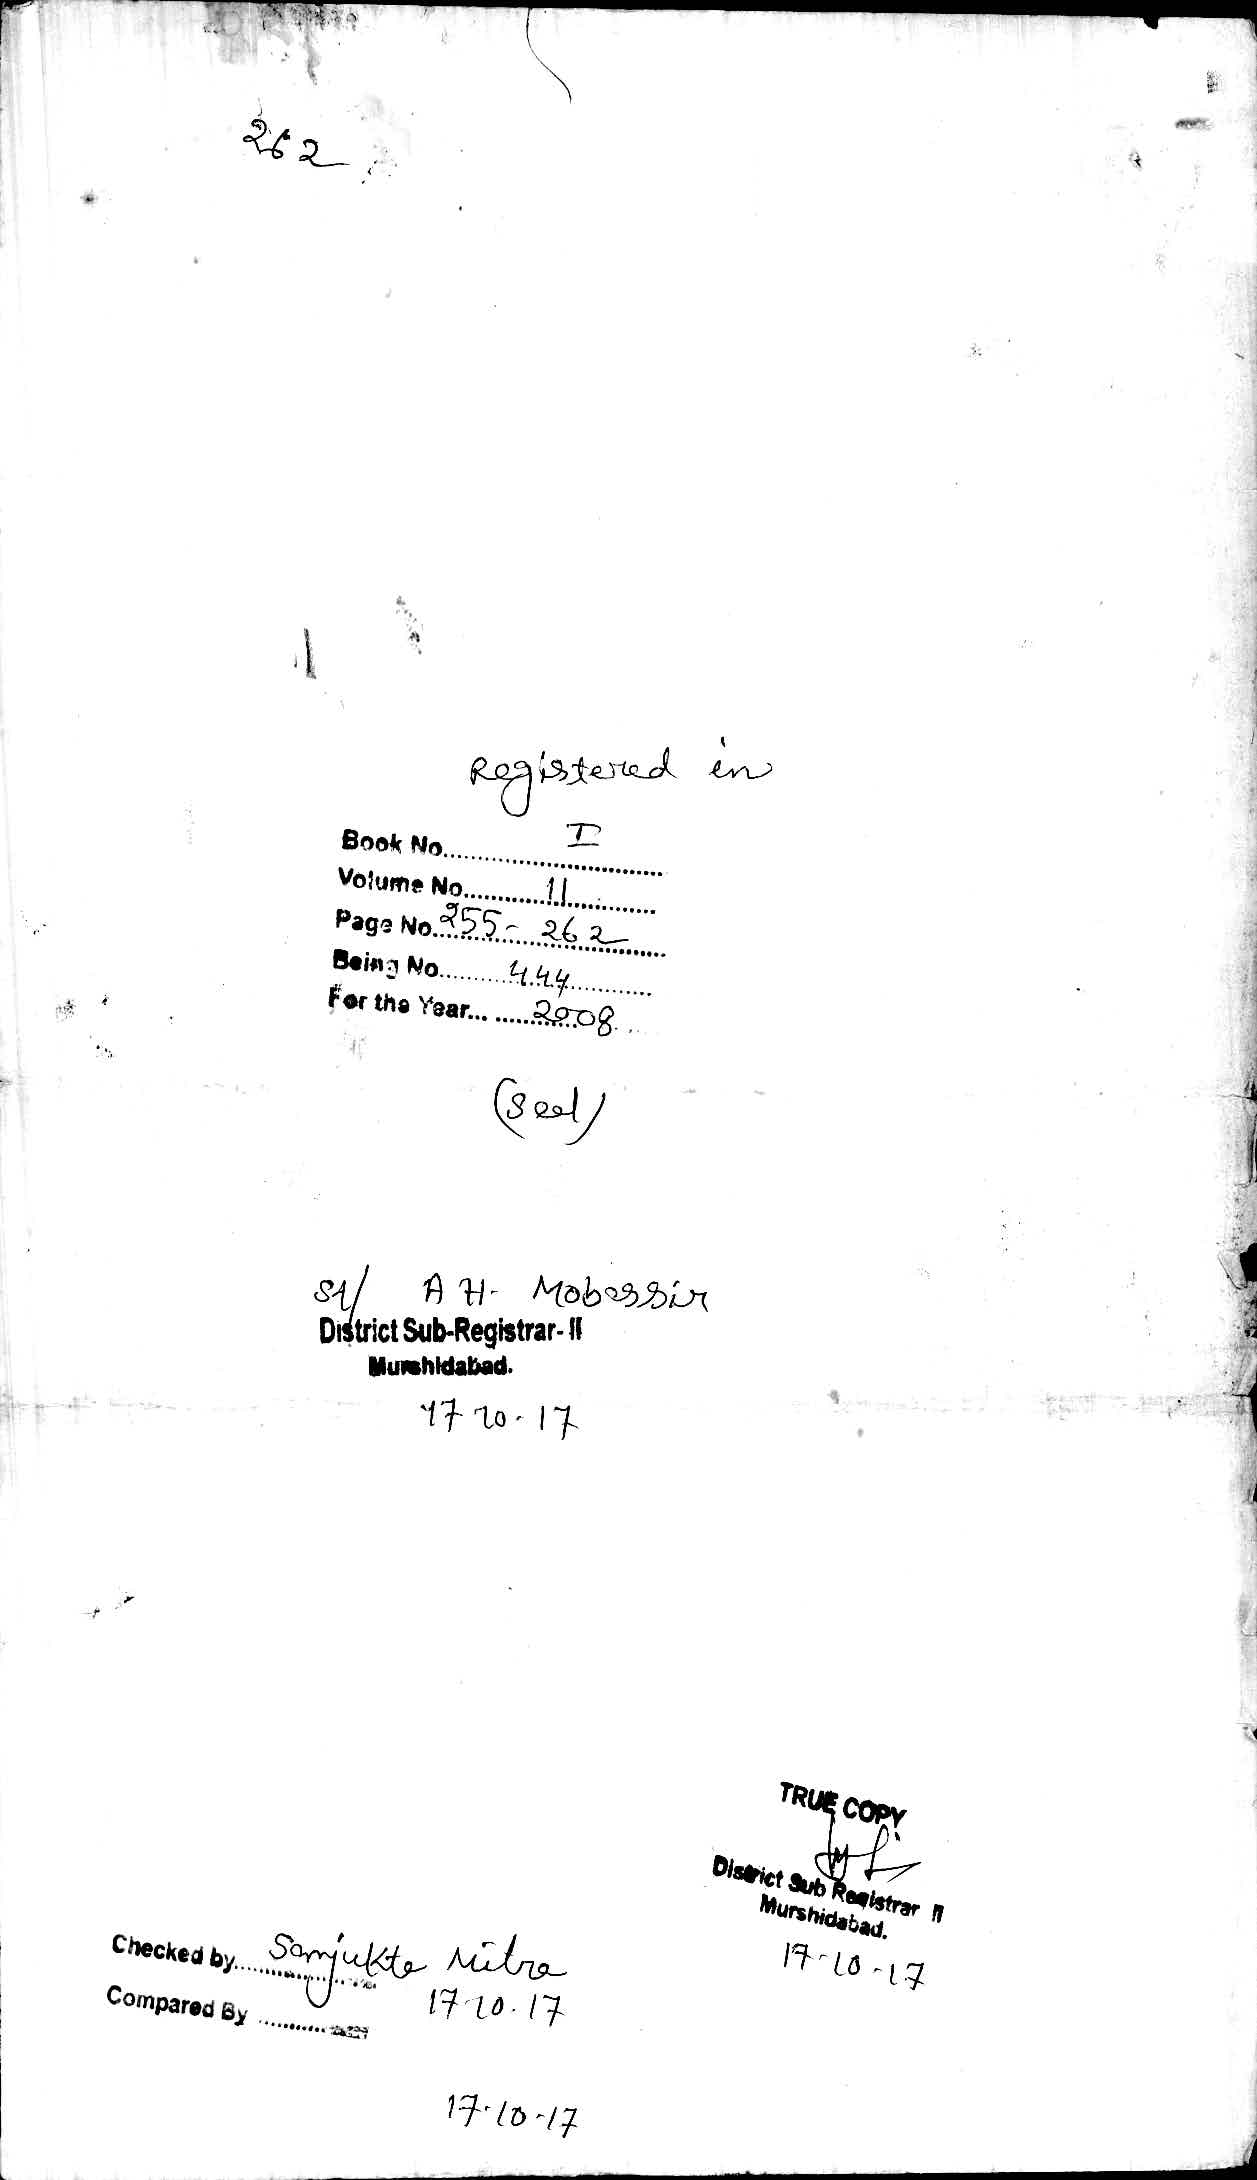 262
Registered in
Book No. I
Volume No. 11
Page No. 255 - 262
Being No. 444
For the Year... 2008
(Seal)
Sd/ A H. Mobassir
District Sub-Registrar- II
Murshidabad.
17 10.17
TRUE COPY
District Sub Registrar II
Murshidabad.
17-10-17
Checked by Sanjukta Mitra
17 10.17
Compared By
17.10-17